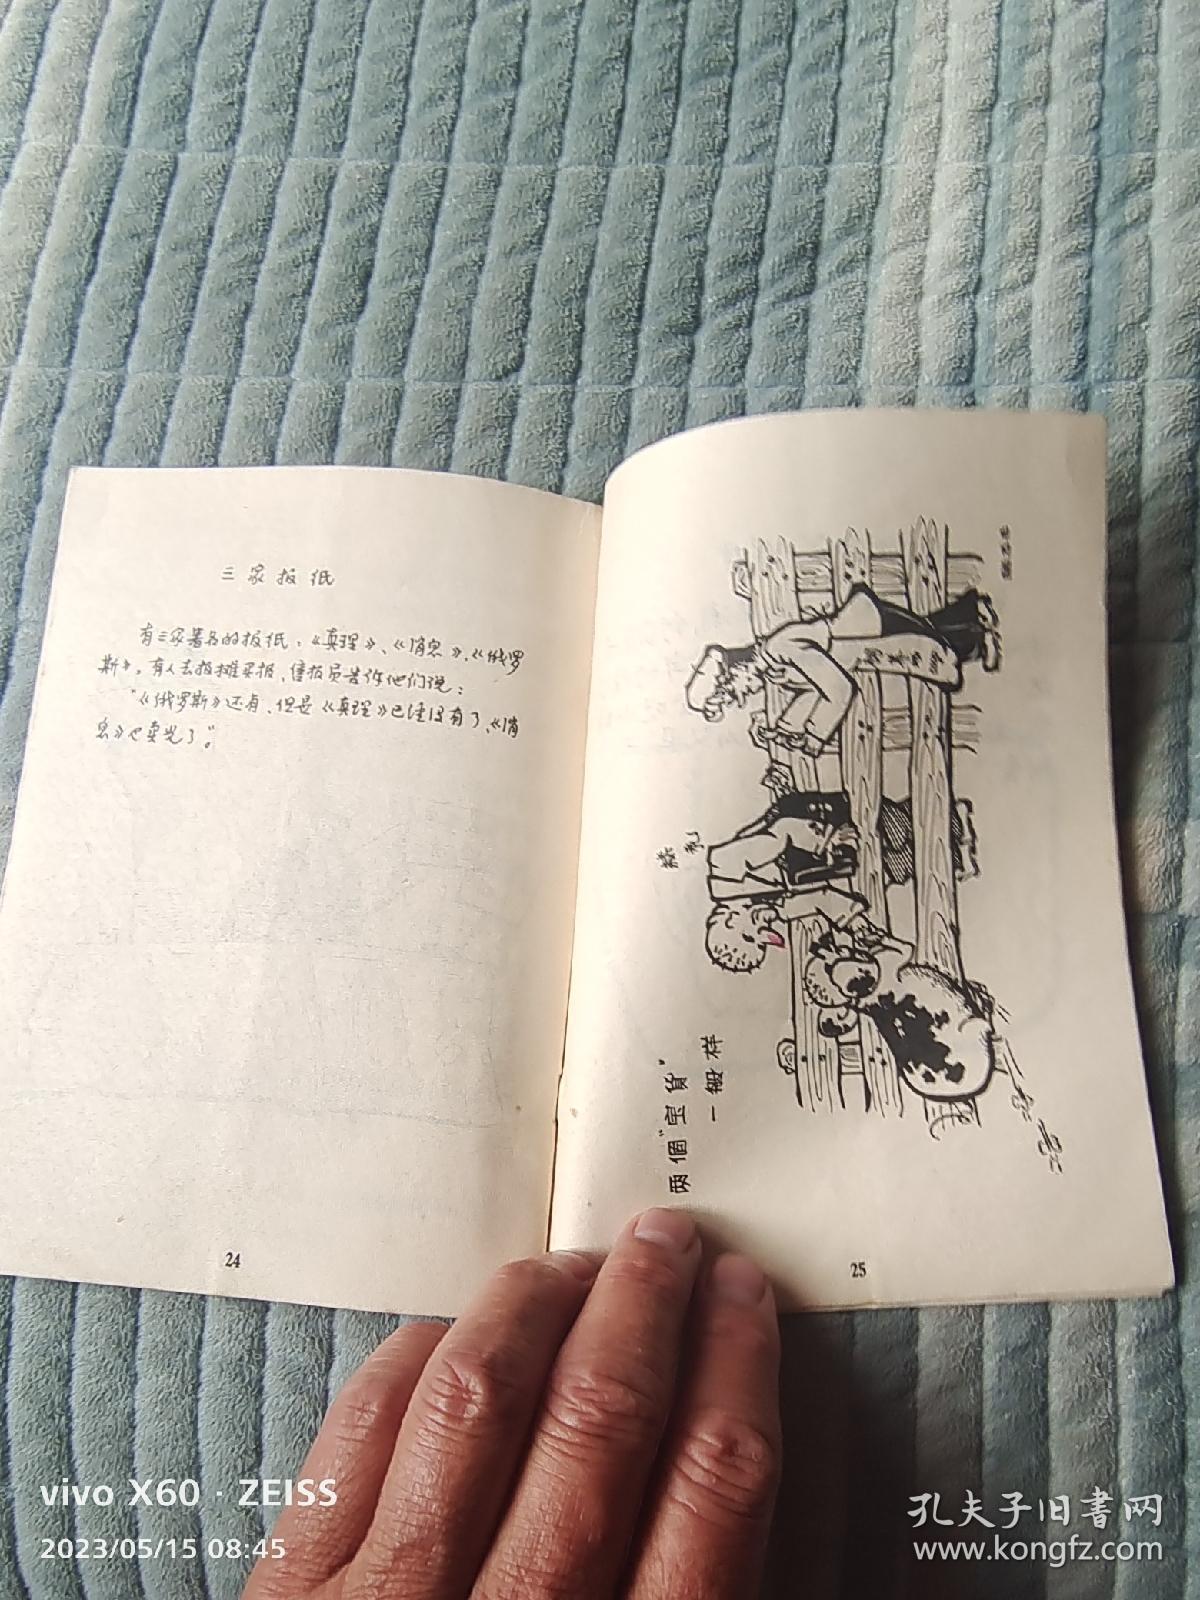 三家报纸
有三家著名的报纸,《真理》、《消息》、《俄罗
斯》。有人去报摊买报,售报员告诉他们说:
“《俄罗斯》还有,但是《真理》已经没有了,《消
息》也卖光了”。
24
两個“宝貨”
一般样
25
vivo X60 · ZEISS
2023/05/15 08:45
孔夫子旧書网
www.kongfz.com